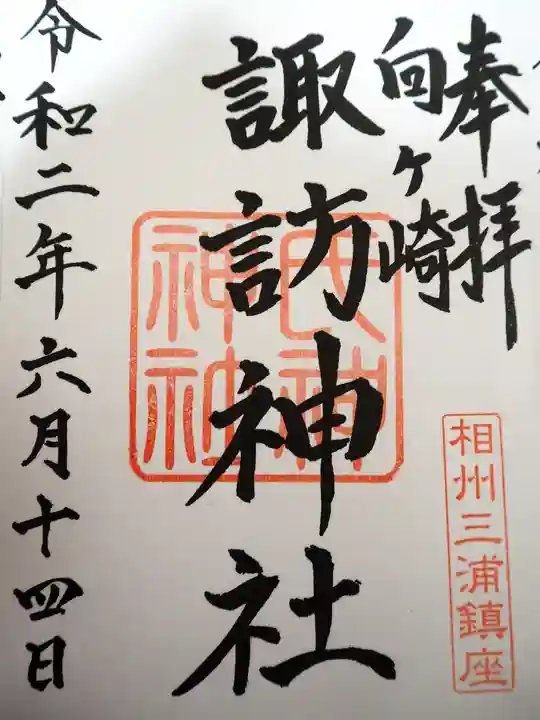 奉拝
向ヶ崎
諏訪神社
氏神
神社
相州三浦鎮座
令和二年六月十四日